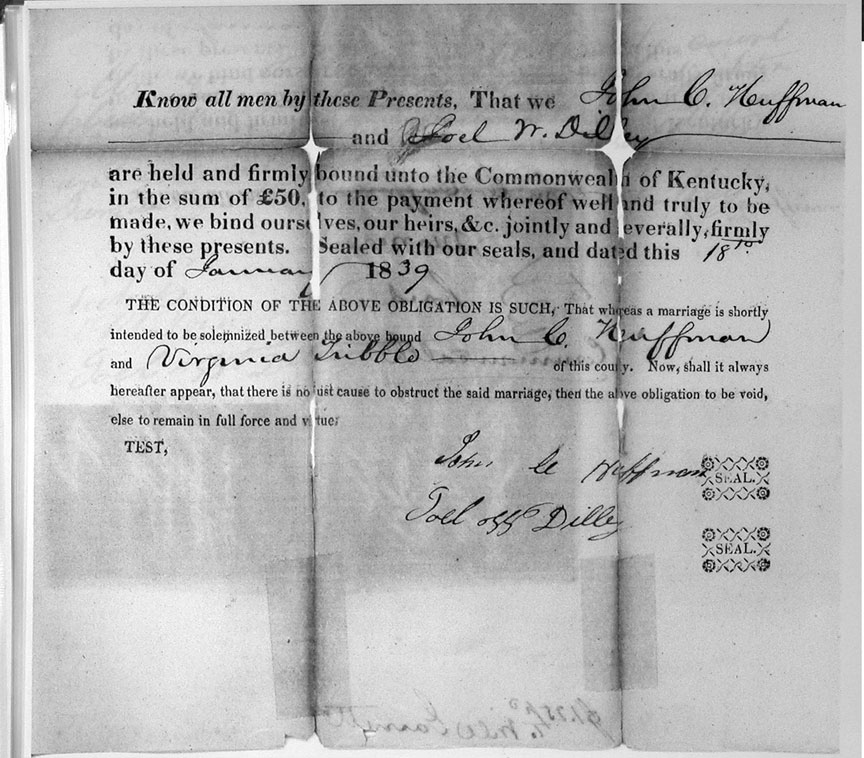 Know all men by these Presents, That we John C. Huffman
and Joel W. Dilley
are held and firmly bound unto the Commonwealth of Kentucky,
in the sum of £50, to the payment whereof well and truly to be
made, we bind ourselves, our heirs, &c. jointly and severally, firmly
by these presents. Sealed with our seals, and dated this 18th
day of January 1839
THE CONDITION OF THE ABOVE OBLIGATION IS SUCH, That whereas a marriage is shortly
intended to be solemnized between the above bound John C. Huffman
and Virginia Tribble of this county. Now, shall it always
hereafter appear, that there is no just cause to obstruct the said marriage, then the above obligation to be void,
else to remain in full force and virtue.
TEST,
John C Huffman
SEAL.
Joel Dilley
SEAL.